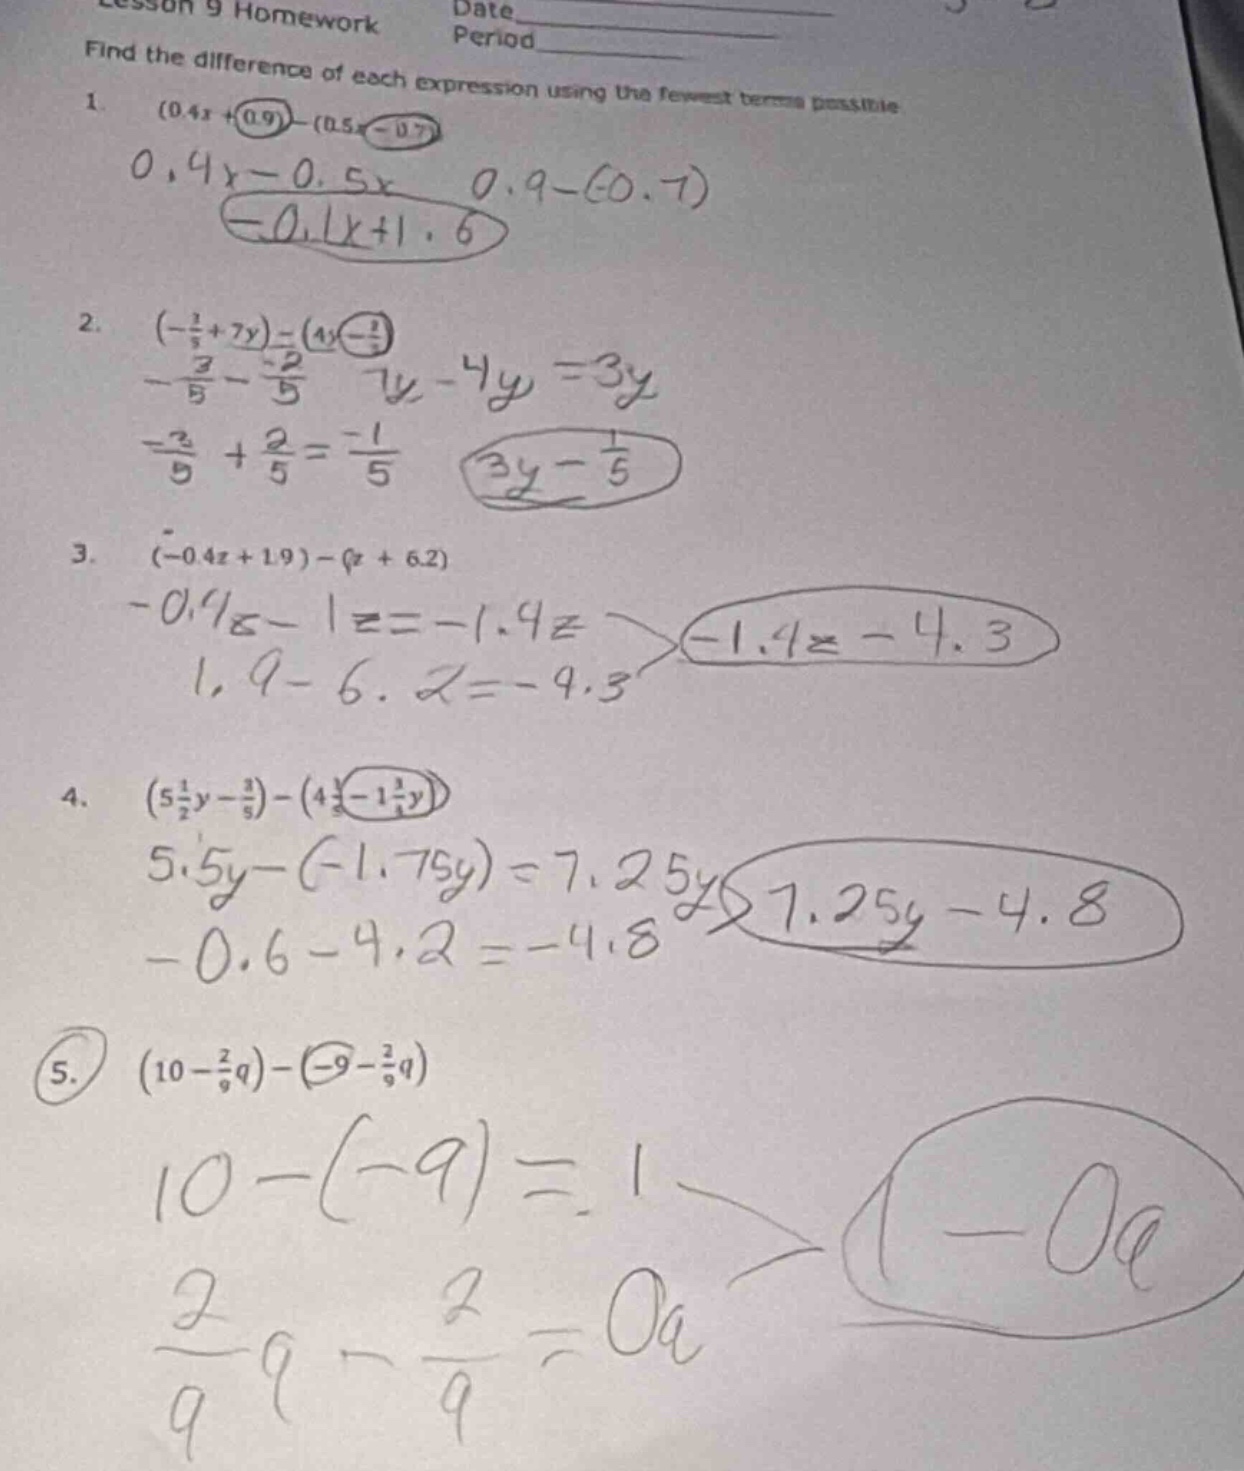 Lesson 9 Homework
Date
Period
Find the difference of each expression using the fewest terms possible
1. (0.4x + 0.9) - (0.5x - 0.7)
0.4x - 0.5x 0.9 - (-0.7)
-0.1x + 1.6
2. (-3/5 + 7y) - (4y - 2/5)
-3/5 - -2/5 7y - 4y = 3y
-3/5 + 2/5 = -1/5 3y - 1/5
3. (-0.4z + 1.9) - (z + 6.2)
-0.4z - 1z = -1.4z
1.9 - 6.2 = -4.3 -1.4z - 4.3
4. (5 1/2 y - 3/5) - (4 1/5 - 1 3/4 y)
5.5y - (-1.75y) = 7.25y
-0.6 - 4.2 = -4.8 7.25y - 4.8
5. (10 - 2/9 q) - (-9 - 2/9 q)
10 - (-9) = 1
1 - 0q
2/9 q - 2/9 = 0q